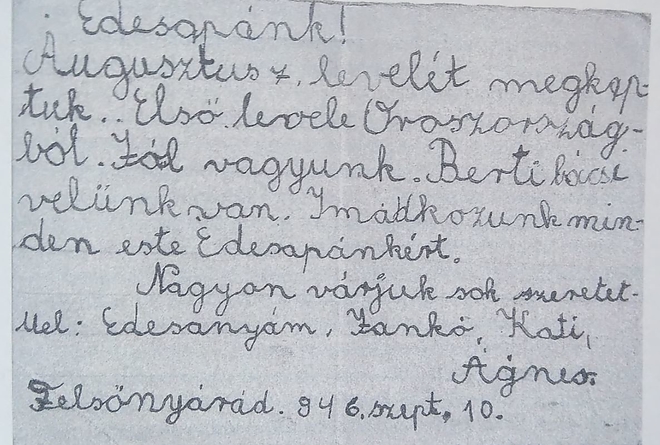 Édesapánk!
Augusztus 7. levelét megkap-
tuk.. Első levele Oroszország-
ból. Jól vagyunk. Berti bácsi
velünk van. Imádkozunk min-
den este Édesapánkért.
Nagyon várjuk sok szeretet-
tel: Édesanyám, Jankó, Kati,
Ágnes.
Felsőnyárád. 946. szept. 10.